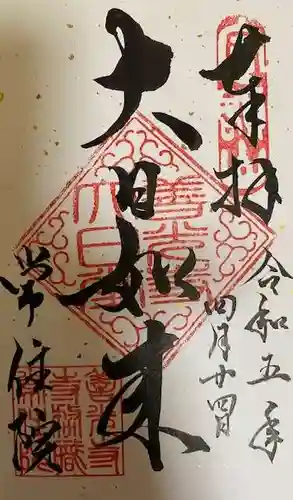 奉拝
令和五年
四月廿四日
大日如来
常住院